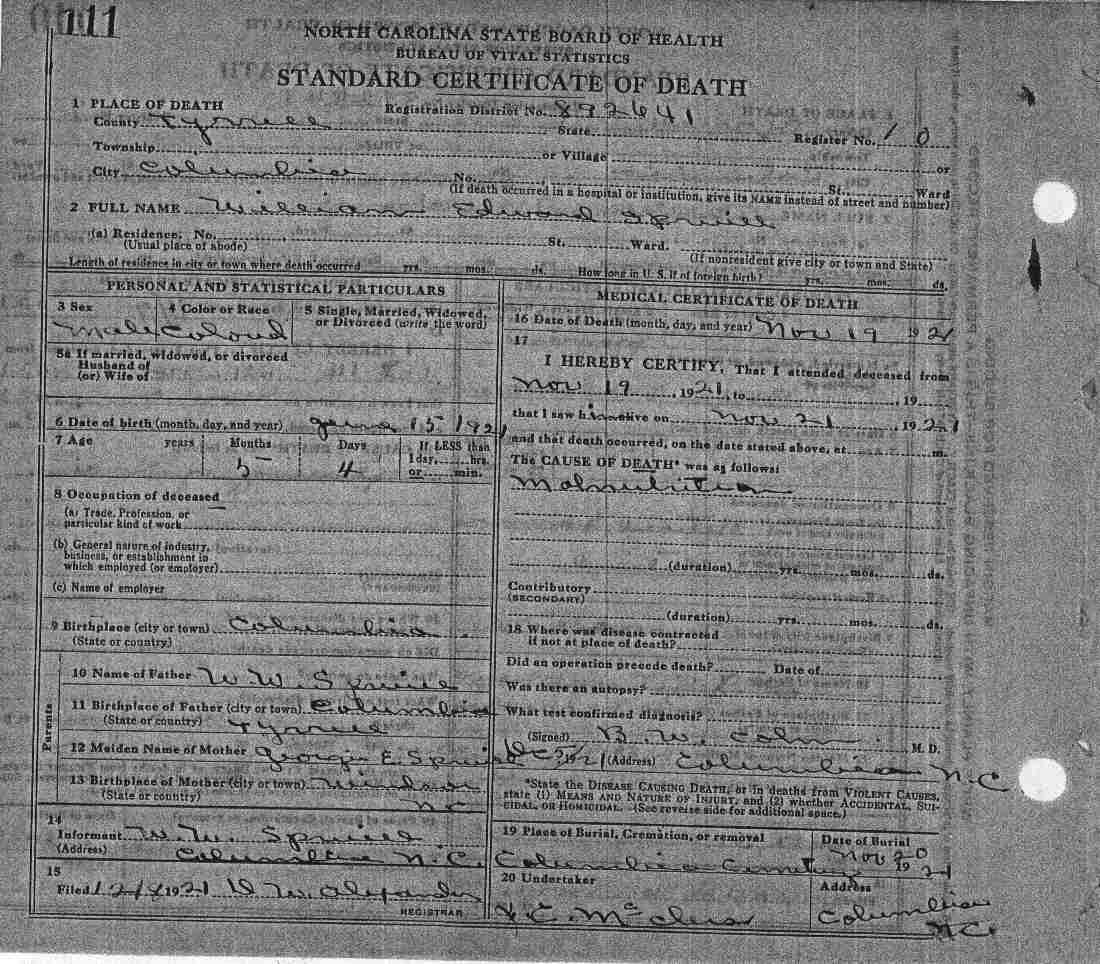 111
NORTH CAROLINA STATE BOARD OF HEALTH
BUREAU OF VITAL STATISTICS
STANDARD CERTIFICATE OF DEATH
1 PLACE OF DEATH
Registration District No. 892641
County Tyrrell State Register No. 10
Township or Village or
City Columbia No. St. Ward
(If death occurred in a hospital or institution, give its NAME instead of street and number)
2 FULL NAME William Edward Spruill
(a) Residence. No. St. Ward.
(Usual place of abode) (If nonresident give city or town and State)
Length of residence in city or town where death occurred yrs. mos. ds. How long in U. S. if of foreign birth? yrs. mos. ds.
PERSONAL AND STATISTICAL PARTICULARS
3 Sex 4 Color or Race 5 Single, Married, Widowed,
or Divorced (write the word)
Male Colord
5a If married, widowed, or divorced
Husband of
(or) Wife of
6 Date of birth (month, day, and year) 15 1921
7 Age years Months Days If LESS than
1 day, hrs.
5 4 or min.
8 Occupation of deceased
(a) Trade, Profession, or
particular kind of work
(b) General nature of industry,
business, or establishment in
which employed (or employer)
(c) Name of employer
9 Birthplace (city or town) Columbia
(State or country)
Parents
10 Name of Father W W Spruill
11 Birthplace of Father (city or town) Columbia
(State or country) Tyrrell
12 Maiden Name of Mother Georgie E. Spruill
13 Birthplace of Mother (city or town) Windsor
(State or country) NC
14
Informant W. W. Spruill
(Address) Columbia N.C.
15
Filed 12/8 1921 W Alexander
REGISTRAR
MEDICAL CERTIFICATE OF DEATH
16 Date of Death (month, day, and year) Nov 19 1921
17
I HEREBY CERTIFY, That I attended deceased from
Nov 19, 1921, to , 19
that I saw him alive on Nov 21, 1921
and that death occurred, on the date stated above, at m.
The CAUSE OF DEATH* was as follows:
Malnutrition
(duration) yrs. mos. ds.
Contributory
(SECONDARY)
(duration) yrs. mos. ds.
18 Where was disease contracted
if not at place of death?
Did an operation precede death? Date of
Was there an autopsy?
What test confirmed diagnosis?
(Signed) B. W. M. D.
1921 (Address) Columbia N.C
*State the DISEASE CAUSING DEATH, or in deaths from VIOLENT CAUSES,
state (1) MEANS AND NATURE OF INJURY, and (2) whether ACCIDENTAL, SUI-
CIDAL, or HOMICIDAL. (See reverse side for additional space.)
19 Place of Burial, Cremation, or removal Date of Burial
Columbia Cemetery Nov 20 1921
20 Undertaker Address
Columbia
N.C.